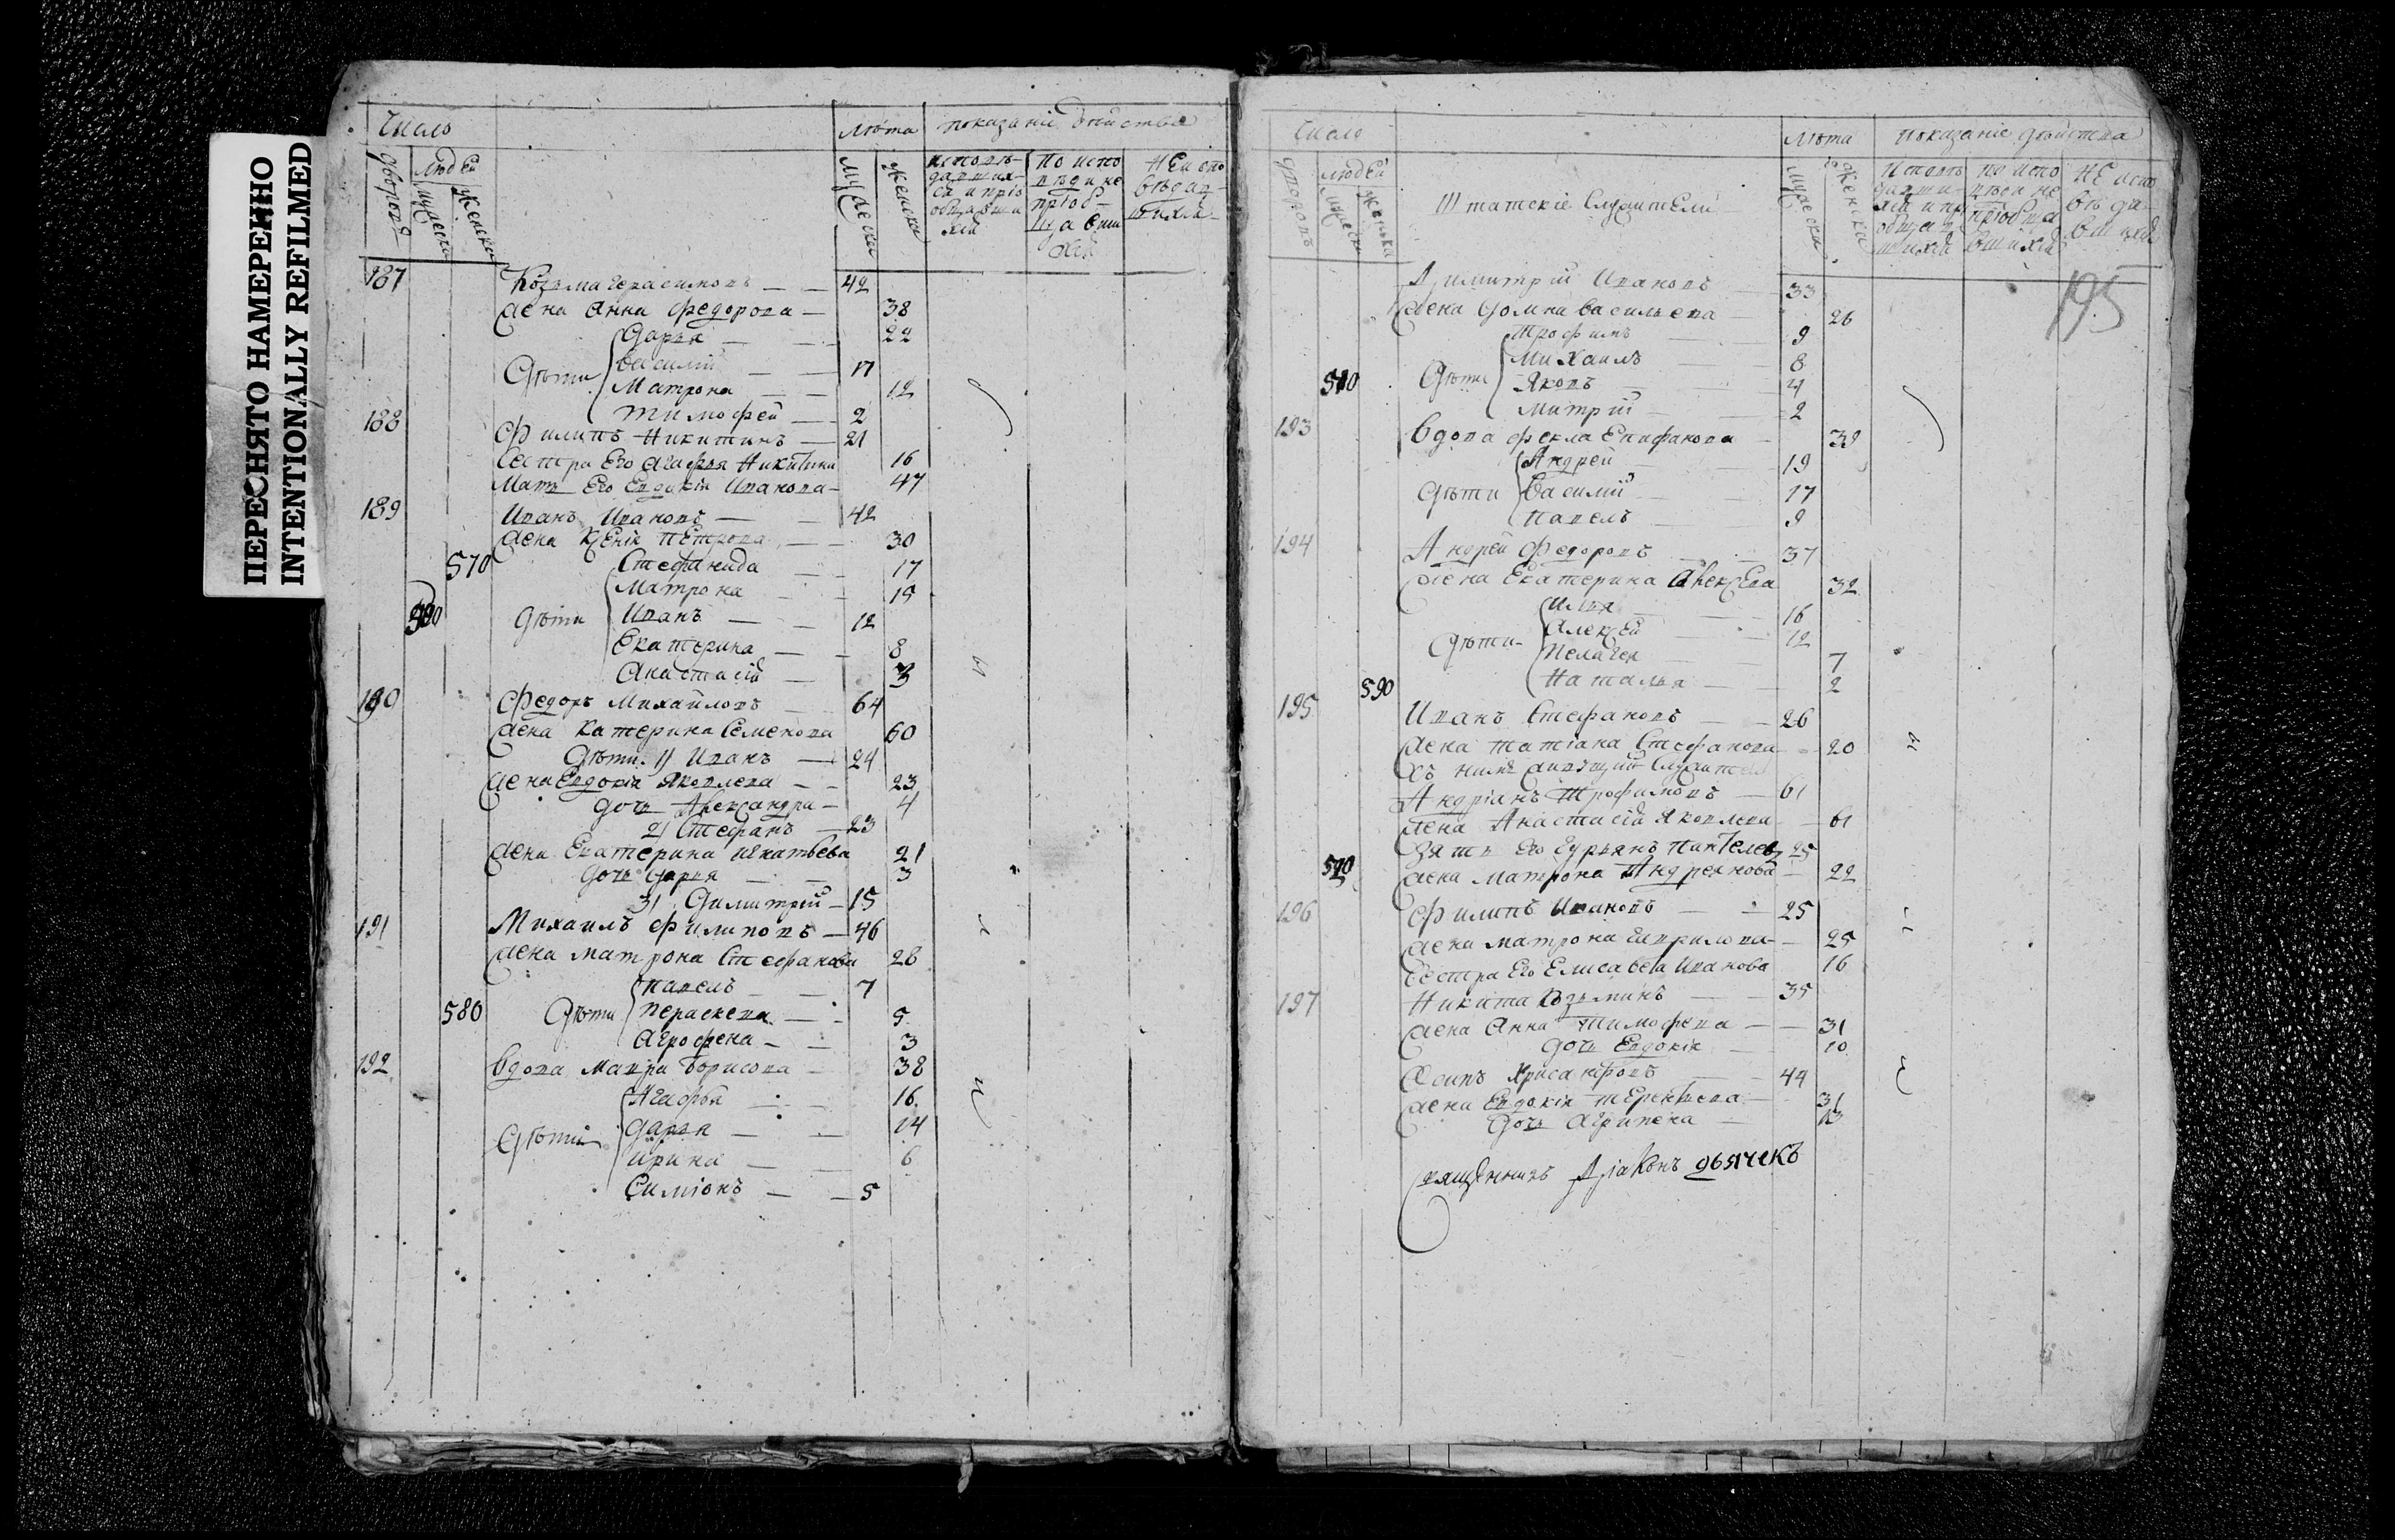 ПЕРЕСНЯТО НАМЕРЕННО
INTENTIONALLY REFILMED
Число
Лѣта
показаніе дѣйства
дворовъ
людей
мужеска
женска
мужеска
женска
исповѣ-
давших-
ся и пріо
общавши
хся
по испо
вѣди не
пріоб-
щавши
хся
не испо
вѣдав-
шихся
187 Козьма Герасимовъ 42
жена Анна Федорова 38
Дарья 22
Дѣти Василий 17
Матрона 12
Тимофей 2
188 Филипъ Никитинъ 21
Сестра Его Агафья Никитина 16
Мать Его Евдокія Иванова 47
189 Иванъ Ивановъ 42
жена Ксенія Петрова 30
570 Стефанида 17
Матрона 15
Дѣти Иванъ 12
Екатерина 8
Анастасія 3
190 Федоръ Михайловъ 64
жена Катерина Семенова 60
Дѣти 1) Иванъ 24
жена Евдокія Яковлева 23
дочь Александра 4
2) Стефанъ 23
жена Екатерина Игнатьева 21
дочь Дарья 3
3) Димитрій 15
191 Михаилъ Филиповъ 46
жена Матрона Стефанова 28
Павелъ 7
580 Дѣти Параскева 5
Агрофена 3
192 Вдова Мавра Борисова 38
Агафья 16
Дѣти Дарья 14
Ирина 6
Симіонъ 5
Число
Лѣта
показаніе дѣйства
дворовъ
людей
мужеска
женска
Штатскіе Служители
мужеска
женска
195
Димитрій Ивановъ 33
жена Домна Васильева 26
Трофимъ 9
Михаилъ 8
Дѣти Яковъ 4
Митрій 2
193 Вдова Фекла Епифанова 39
Андрей 19
Дѣти Василий 17
Павелъ 9
194 Андрей Федоровъ 37
жена Екатерина Алексева 32
Илья 16
Алексей 12
Дѣти Пелагея 7
590 Наталья 2
195 Иванъ Стефановъ 26
жена Татіана Стефанова 20
Андріанъ Трофимовъ 61
жена Анастасія Яковлева 61
Зять Его Гурьянъ Пантелеев 25
жена Матрона Андреянова 22
196 Филипъ Ивановъ 25
жена Матрона Гаврилова 25
Сестра Его Елисавета Иванова 16
197 Никита Козьминъ 35
жена Анна Тимофева 31
дочь Евдокія 10
Осипъ Хрисанфовъ 44
жена Евдокія Терентиева 31
дочь Агрипена 13
священникъ діаконъ дьячекъ